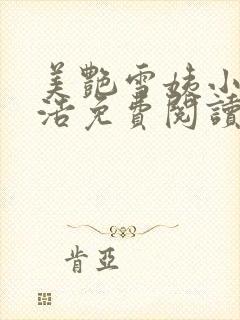 美艷雪姨小
活免費閱讀
肯亞